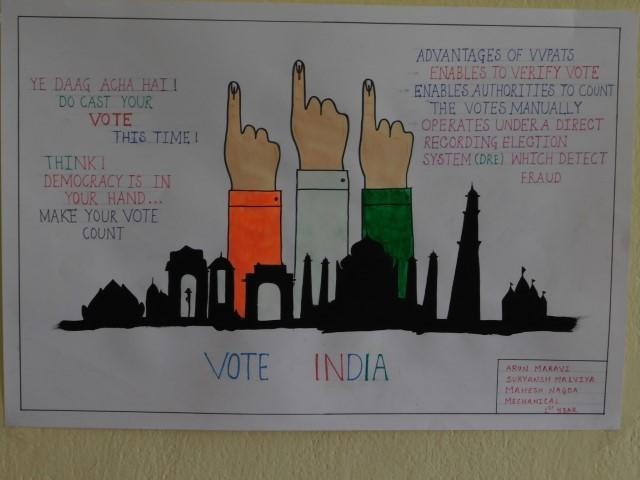 YE DAAG ACHA HAI!
DO CAST YOUR
VOTE
THIS TIME!
THINK!
DEMOCRACY IS IN
YOUR HAND...
MAKE YOUR VOTE
COUNT
ADVANTAGES OF VVPATS
- ENABLES TO VERIFY VOTE
- ENABLES AUTHORITIES TO COUNT
THE VOTES MANUALLY
- OPERATES UNDER A DIRECT
RECORDING ELECTION
SYSTEM (DRE) WHICH DETECT
FRAUD
VOTE INDIA
ARUN MARAVI
SURYANSH MALVIYA
MAHESH NAGDA
MECHANICAL
1ST YEAR